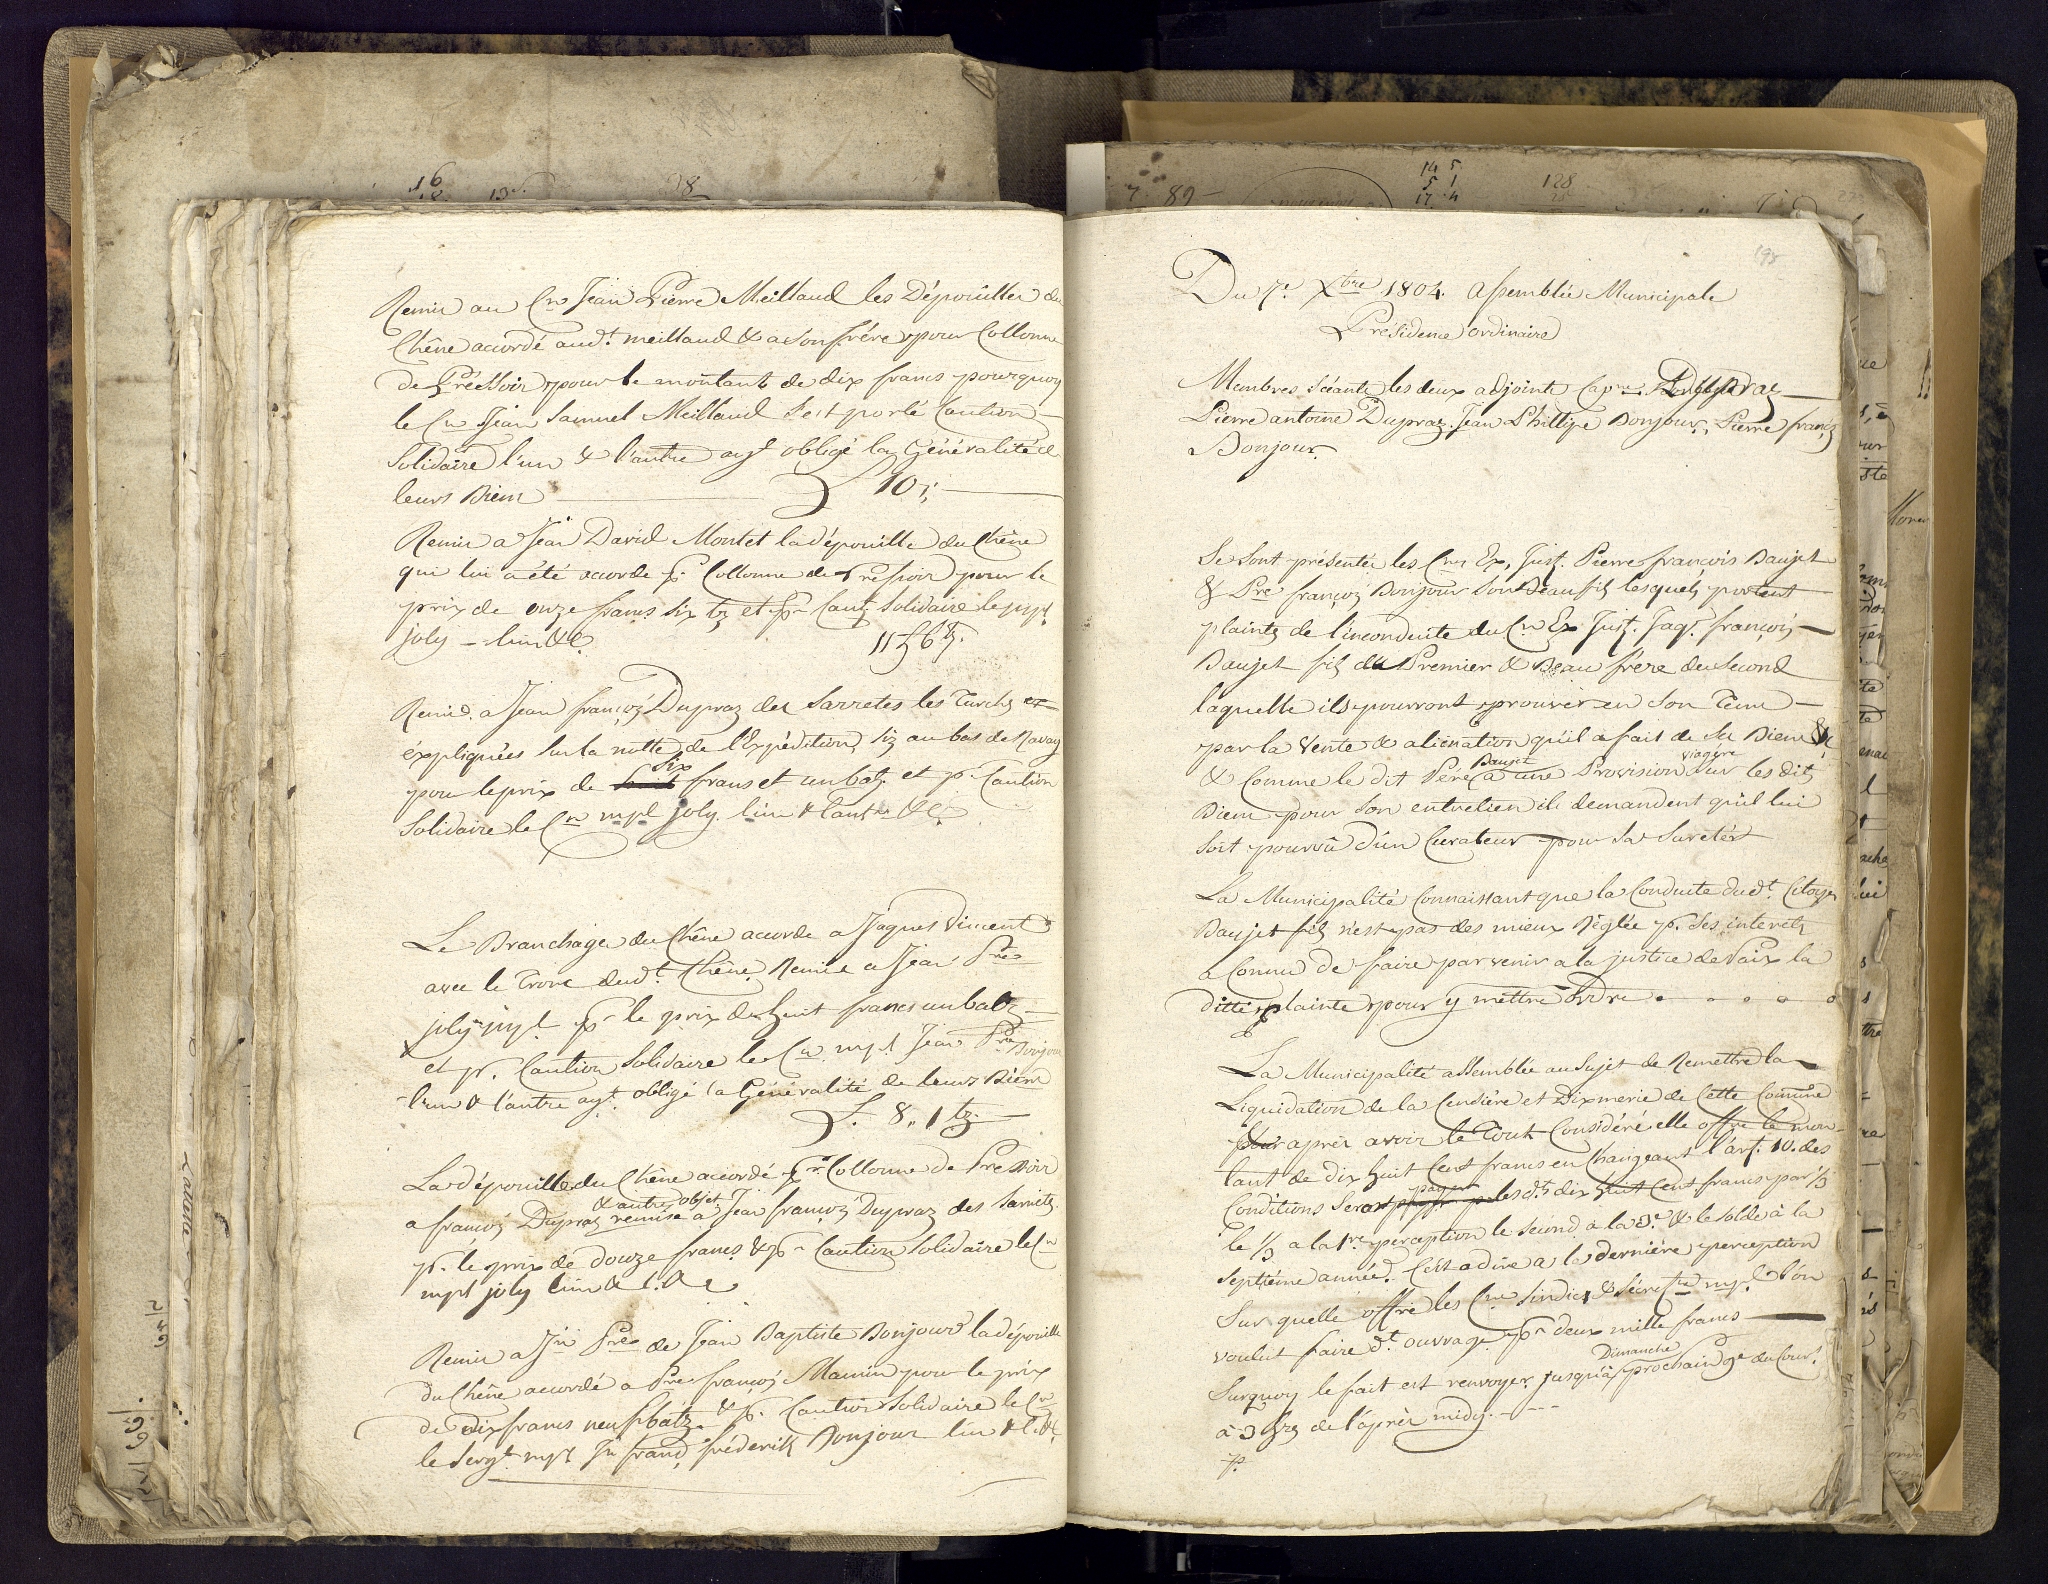 Remis au Cn Jean Pierre Meillaud les Dépouilles du
Chêne accordé aud.t meillaud & a son frére pour Collonne
de Préssoir pour le montant de dix francs pourquoy
le Cn Jean Samuel Meillaud s'est porté Caution
Solidaire l'un & l'autre ayt obligé la Généralité de
leurs Biens 10 ;
Remis a Jean David Montet la dépouille du Chêne
qui lui a été accordé pr Collonne de Pressoir pour le
prix de onze francs six bz et pr Caut. Solidaire le mpl
joly - l'un &c.
11 f 6 bz.
Remis. a Jean françois Dupraz des Sarretes les Turchs et
éxpliquées sur la notte de l'Expédition, siz au bas de Ravay
pour le prix de six francs et un batz. et pr. Caution
Solidaire le Cn mpl joly. l'un & l'autre &c.
Le Branchage du Chêne accordé a Jaques Vincent
avec le Tronc dud.t Chêne Remis a Jean Pre
joly mpl pr le prix de huit francs un batz
et pr. Caution Solidaire le Cn mpl Jean Pre Bonjour
l'un & l'autre ayt. obligé la Généralité de leurs Biens
L. 8 ,, 1 bz.
La dépouille du Chêne accordé pr Collonne de Pressoir
& autres objet
a françois Dupraz remise a Jean françois Dupraz des Sarrets
pr. le prix de douze francs & pr Caution Solidaire le Cn
mpl joly l'un & l'. &c
Remis a Jn Pre de Jean Baptiste Bonjour la dépouille
du Chêne accordé a Pre françois Mamin pour le prix
de dix francs neuf batz & pr. Caution Solidaire le Cn
le Sergt. mpl Jn franç. fréderik Bonjour l'un & l'. &c
198
Du 7e Xbre 1804. Assemblée Municipale
Présidence ordinaire
Membres Séants les deux adjoints Capne Dupraz
Pierre antoine Dupraz. Jean Phillipe Bonjour, Pierre françs
Bonjour.
Se sont présentés les Cns Ex, Just. Pierre françois Daujet
& Pre françois Bonjour son Beau fils lesquels portent
plaintes de l'inconduite du Cn Ex Just. Jaq. françois
Daujet fils du Premier & Beau frère du Second
laquelle ils pourront prouver en son Tems
par la Vente & alienation qu'il a fait de ses Biens
Daujet viagère
& Comme le dit Pére a une Provision sur les dits
Biens pour son entretien ils demandent qu'il lui
soit pourvû d'un Curateur pour sa Sureté
La Municipalité Connaissant que la Conduite dud.t Citoyen
Daujet fils n'est pas des mieux Réglée pr. ses interets
a Connu de faire parvenir a la justice de Paix la
ditte plainte pour y mettre Ordre
La Municipalité assemblée au Sujet de Remettre la
Liquidation de la Censiére et Dixmerie de Cette Comune
après avoir le Tout Considéré elle offre le mon-
tant de dix huit Cent francs en Changeant l'art. 10. des
payer
Conditions Seront les d.ts dix huit Cent francs par 1/3
le 1/3 a la 1re perception le second a la 3.e & le solde à la
septiéme année. C'est a dire a la derniére perception
Sur quelle offre les Cns Sindics & Sécretre mpl l'on
voulut faire d.t ouvrage pr deux mille francs
Dimanche
Surquoy le fait est renvoyer jusqu'à prochain 9e du Cour.t
à 3 hrs de l'après midy.